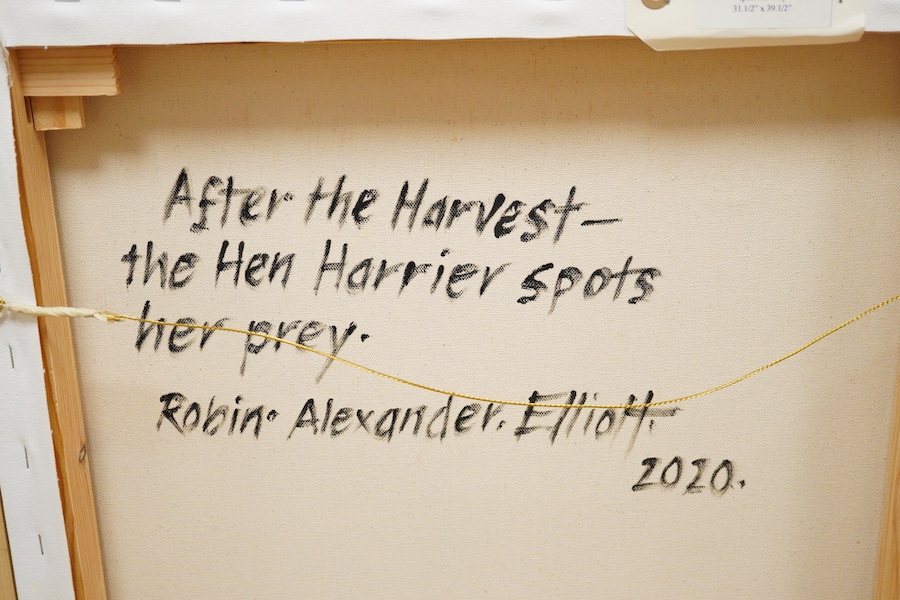 31.1/2" x 39.1/2"
After the Harvest-
the Hen Harrier spots
her prey.
Robin. Alexander. Elliott.
2020.